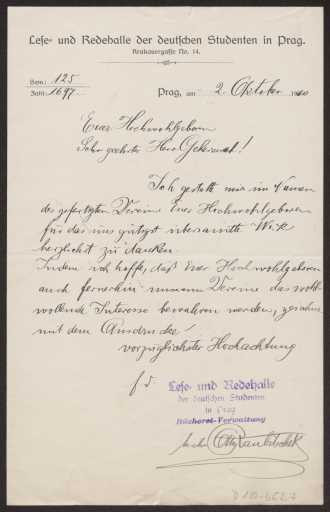 Lese- und Redehalle der deutschen Studenten in Prag.
Krakauergasse No. 14.
Sem: 125
Zahl: 1697
Prag, am 2. Oktober
Euer Hochwohlgeboren
Sehr geehrter Herr !
Ich gestatte mir im Namen
des gefertigten Vereines Euer Hochwohlgeboren
für das uns gütigst übersandte Werk
herzlichst zu danken
Indem ich hoffe, daß Euer Hochwohlgeboren
auch fernerhin unserem Vereine das wohl-
wollende Interesse bewahren werden, zeichne
mit dem Ausdrucke
vorzüglichster Hochachtung
f. d.
Lese- und Redehalle
der deutschen Studenten
in Prag
Bücherei-Verwaltung